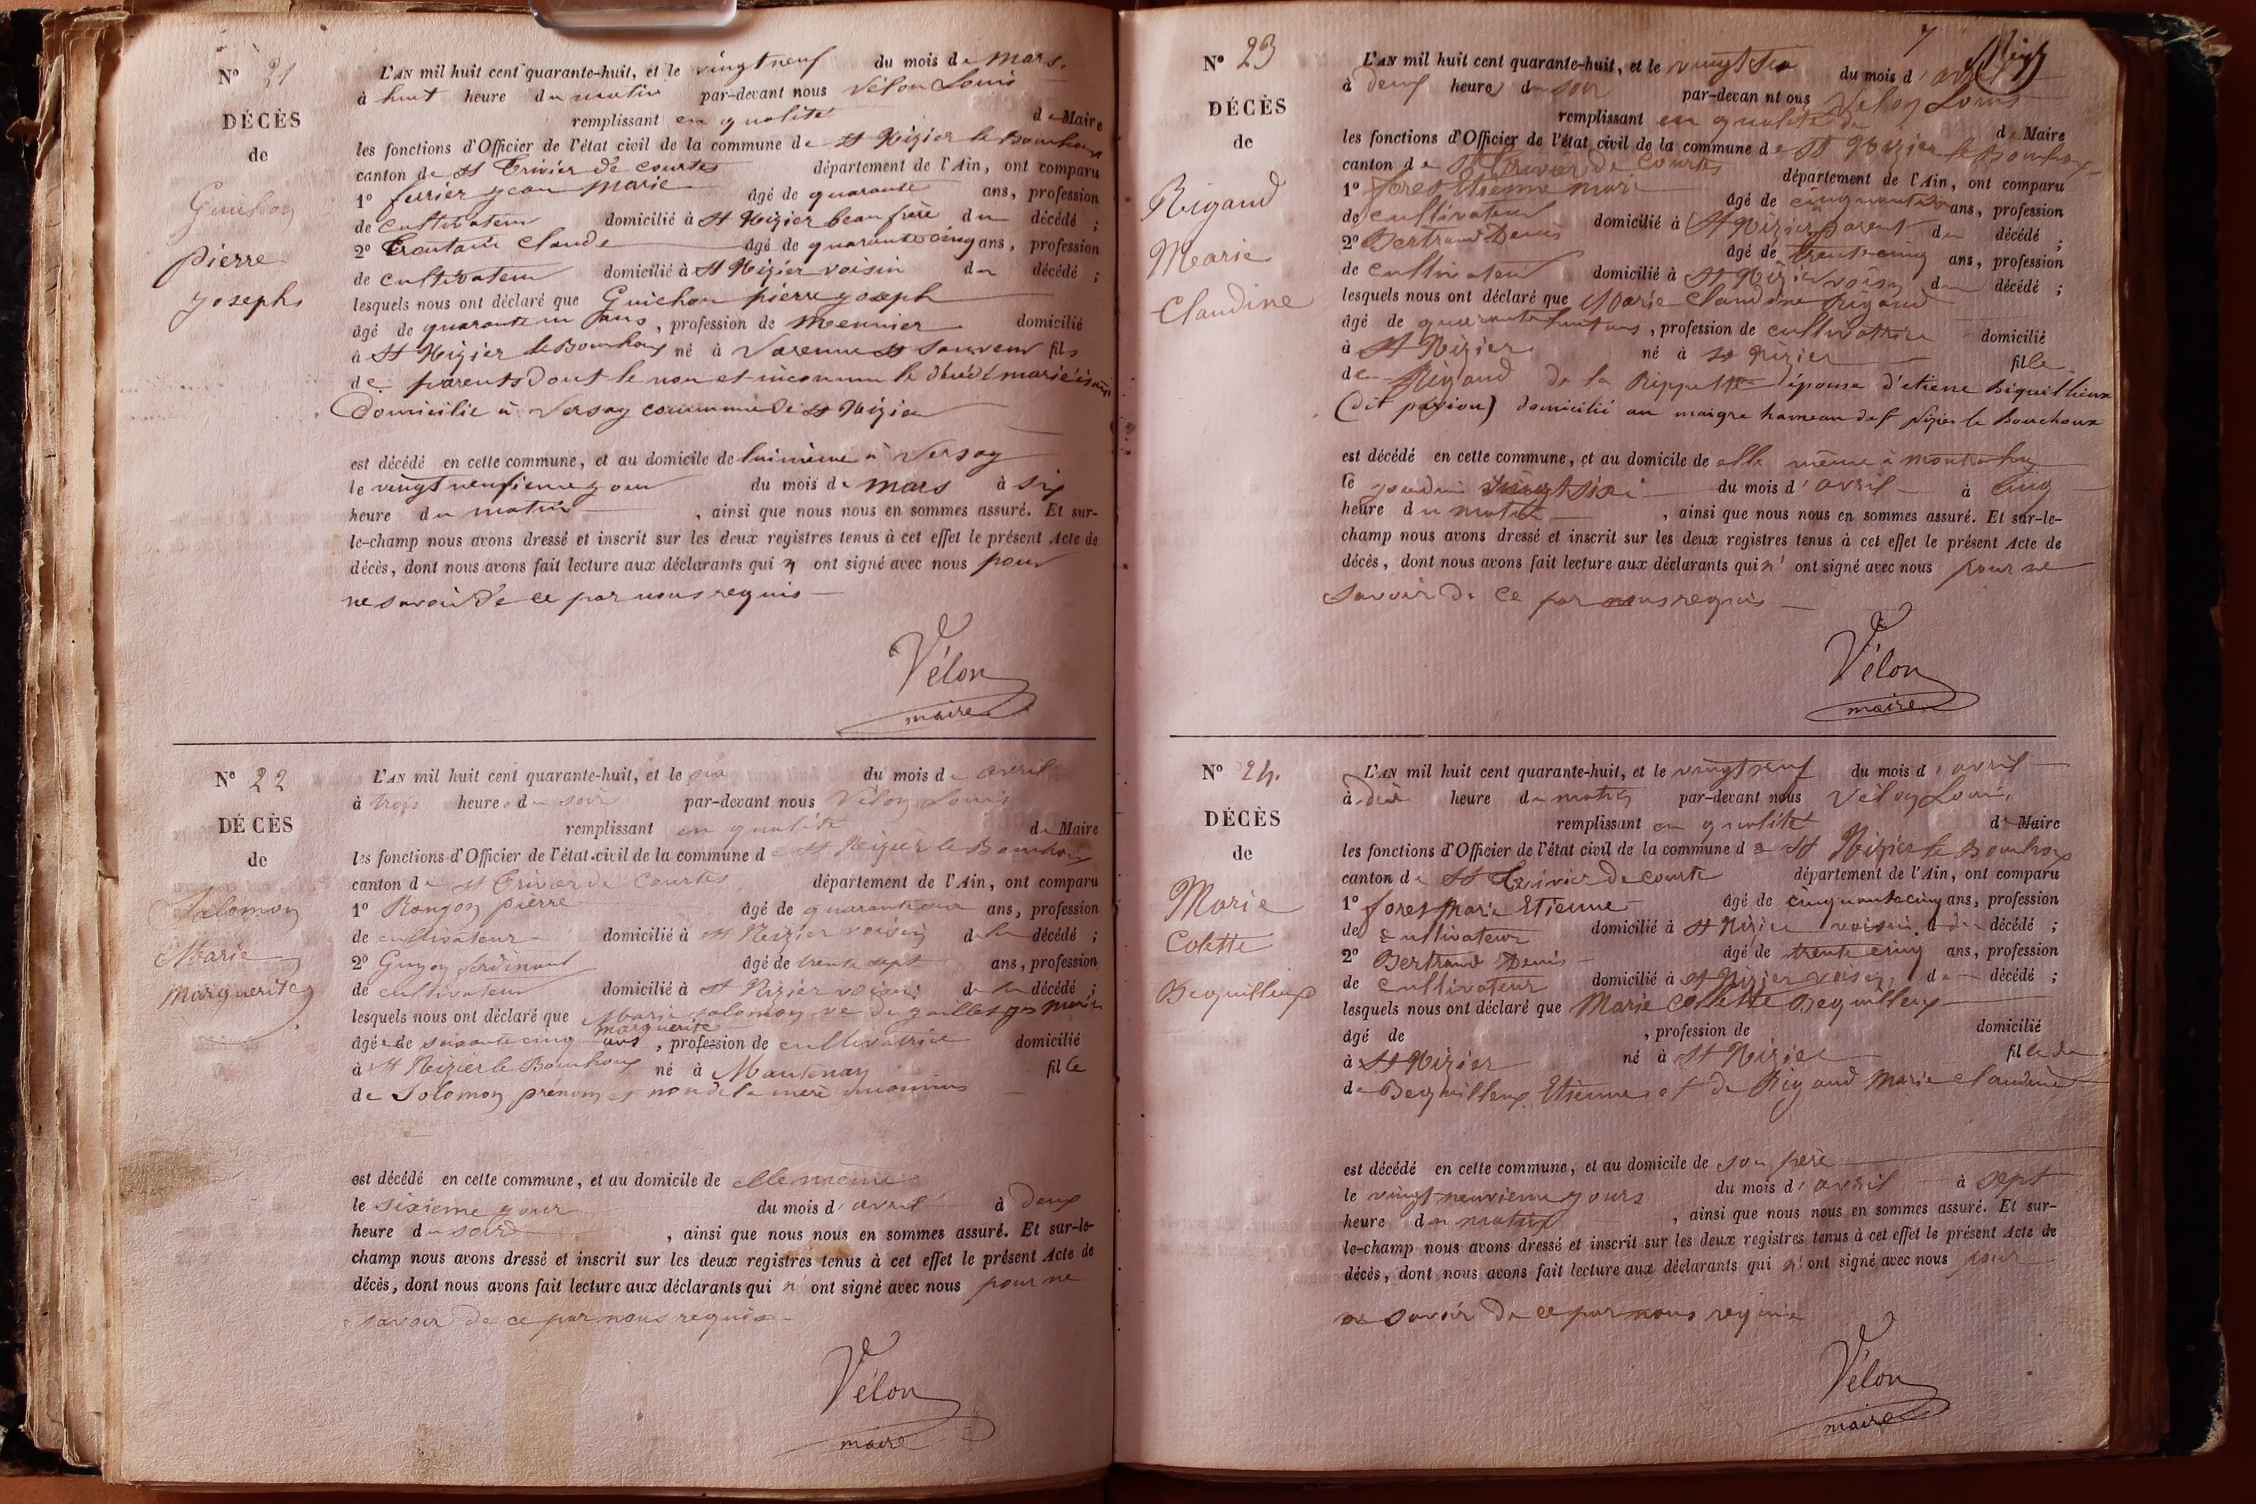 N° 21
DÉCÈS
de
Guichon
pierre
joseph
L'AN mil huit cent quarante-huit, et le vingt neuf du mois de mars
à huit heure du matin par-devant nous Vélon Louis
remplissant en qualité de Maire
les fonctions d'Officier de l'état civil de la commune de St Nizier le Bouchoux
canton de St Trivier de courtes département de l'Ain, ont comparu
1° jean marie âgé de quarante ans, profession
de cultivateur domicilié à St Nizier beau frère du décédé ;
2° claude âgé de quarante cinq ans, profession
de cultivateur domicilié à St Nizier voisin du décédé ;
lesquels nous ont déclaré que Guichon pierre joseph
âgé de ans, profession de meunier domicilié
à St Nizier le Bouchoux né à Varenne St Sauveur fils
de parents dont le nom et inconnu le décédé marié
domicilié à Versay commune de St Nizier
est décédé en cette commune, et au domicile de lui même à Versay
le vingt neufieme jour du mois de mars à six
heure du matin , ainsi que nous nous en sommes assuré. Et sur-
le-champ nous avons dressé et inscrit sur les deux registres tenus à cet effet le présent Acte de
décès, dont nous avons fait lecture aux déclarants qui n ont signé avec nous pour
ne savoir de ce par nous requis
Vélon
maire
N° 22
DÉCÈS
de
Salomon
Marie
Marguerite
L'AN mil huit cent quarante-huit, et le six du mois de avril
à trois heures du soir par-devant nous Vélon Louis
remplissant en qualité de Maire
les fonctions d'Officier de l'état civil de la commune de St Nizier le Bouchoux
canton de St Trivier de Courtes département de l'Ain, ont comparu
1° Rongon pierre âgé de ans, profession
de cultivateur domicilié à St Nizier voisin de la décédé ;
2° Guyon ferdinant âgé de trente sept ans, profession
de cultivateur domicilié à St Nizier voisin de la décédé ;
lesquels nous ont déclaré que Marie Salomon ve de
marguerite
âgée de soixante cinq ans, profession de cultivatrice domicilié
à St Nizier le Bouchoux né à Mantenay fille
de Solomon prénom et nom de la mère inconnus
est décédé en cette commune, et au domicile de elle même
le sixieme jour du mois d'avril à deux
heure du soir , ainsi que nous nous en sommes assuré. Et sur-le-
champ nous avons dressé et inscrit sur les deux registres tenus à cet effet le présent Acte de
décès, dont nous avons fait lecture aux déclarants qui n' ont signé avec nous pour ne
savoir de ce par nous requis
Vélon
maire
7
N° 23
DÉCÈS
de
Rigaud
Marie
Claudine
L'AN mil huit cent quarante-huit, et le vingt six du mois d'avril
à deux heures du soir par-devan nt ous Vélon Louis
remplissant en qualité de de Maire
les fonctions d'Officier de l'état civil de la commune de St Nizier le Bouchoux
canton de St Trivier de Courtes département de l'Ain, ont comparu
1° fores Etienne mari âgé de ans, profession
de cultivateur domicilié à St Nizier parent du décédé ;
2° Bertrand Denis âgé de trente cinq ans, profession
de cultivateur domicilié à St Nizier voisin du décédé ;
lesquels nous ont déclaré que Marie Claudine Rigaud
âgé de quarante huit ans, profession de cultivatrice domicilié
à St Nizier né à St Nizier fille
de Rigaud de la Rippette épouse d'etiene Béquillieux
(dit ) domicilié au maigre hameau de St Nizier le Bouchoux
est décédé en cette commune, et au domicile de elle même à
le vingt six du mois d'avril à cinq
heure du matin , ainsi que nous nous en sommes assuré. Et sur-le-
champ nous avons dressé et inscrit sur les deux registres tenus à cet effet le présent Acte de
décès, dont nous avons fait lecture aux déclarants qui n' ont signé avec nous pour ne
savoir de ce par nous requis
Vélon
maire
N° 24.
DÉCÈS
de
Marie
Colette
Bequilleux
L'AN mil huit cent quarante-huit, et le vingt neuf du mois d'avril
à dix heure du matin par-devant nous Vélon Louis
remplissant en qualité de Maire
les fonctions d'Officier de l'état civil de la commune de St Nizier le Bouchoux
canton de St Trivier de courte département de l'Ain, ont comparu
1° fores marie Etienne âgé de cinquante cinq ans, profession
de cultivateur domicilié à St Nizier voisin du décédé ;
2° Bertrand Denis âgé de trente cinq ans, profession
de cultivateur domicilié à St Nizier voisin de décédé ;
lesquels nous ont déclaré que Marie colette Bequilleux
âgé de , profession de domicilié
à St Nizier né à St Nizier fille de
de Bequilleux Etienne et de Rigaud Marie claudine
est décédé en cette commune, et au domicile de son père
le vingt neuvieme jours du mois d'avril à sept
heure du matin , ainsi que nous nous en sommes assuré. Et sur-
le-champ nous avons dressé et inscrit sur les deux registres tenus à cet effet le présent Acte de
décès, dont nous avons fait lecture aux déclarants qui n' ont signé avec nous pour
ne savoir de ce par nous requis
Vélon
maire